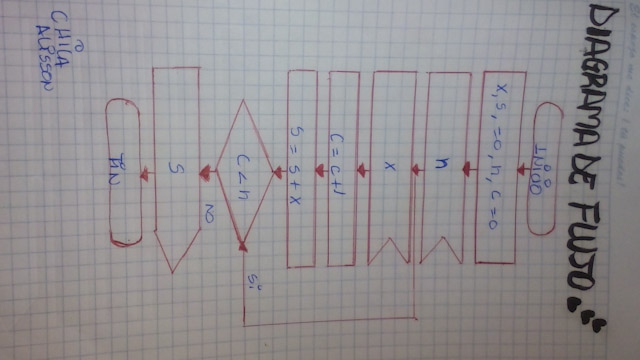 DIAGRAMA DE FLUJO
INICIO
x, s, =0, n, c =0
n
x
c = c+1
s = s + x
c < n
SÍ
NO
S
FIN
CHILA
ALISSON